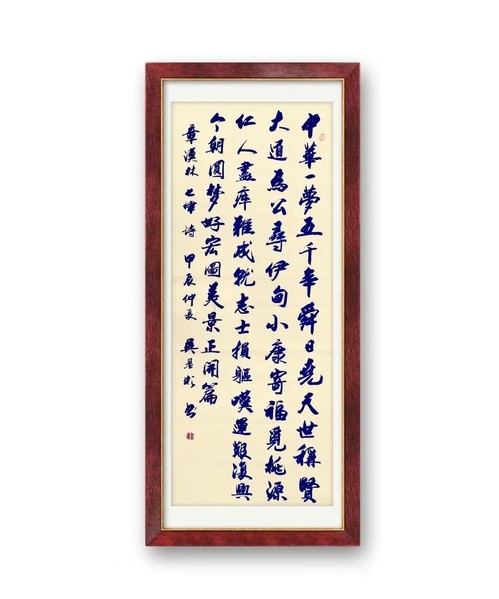 中華一夢五千年舜日堯天世稱賢
大道為公尋伊甸小康寄福覓桃源
仁人盡瘁難成就志士捐軀嘆運艱復興
今朝圓夢好宏圖美景正開篇
章漢林七律詩甲辰仲夏書